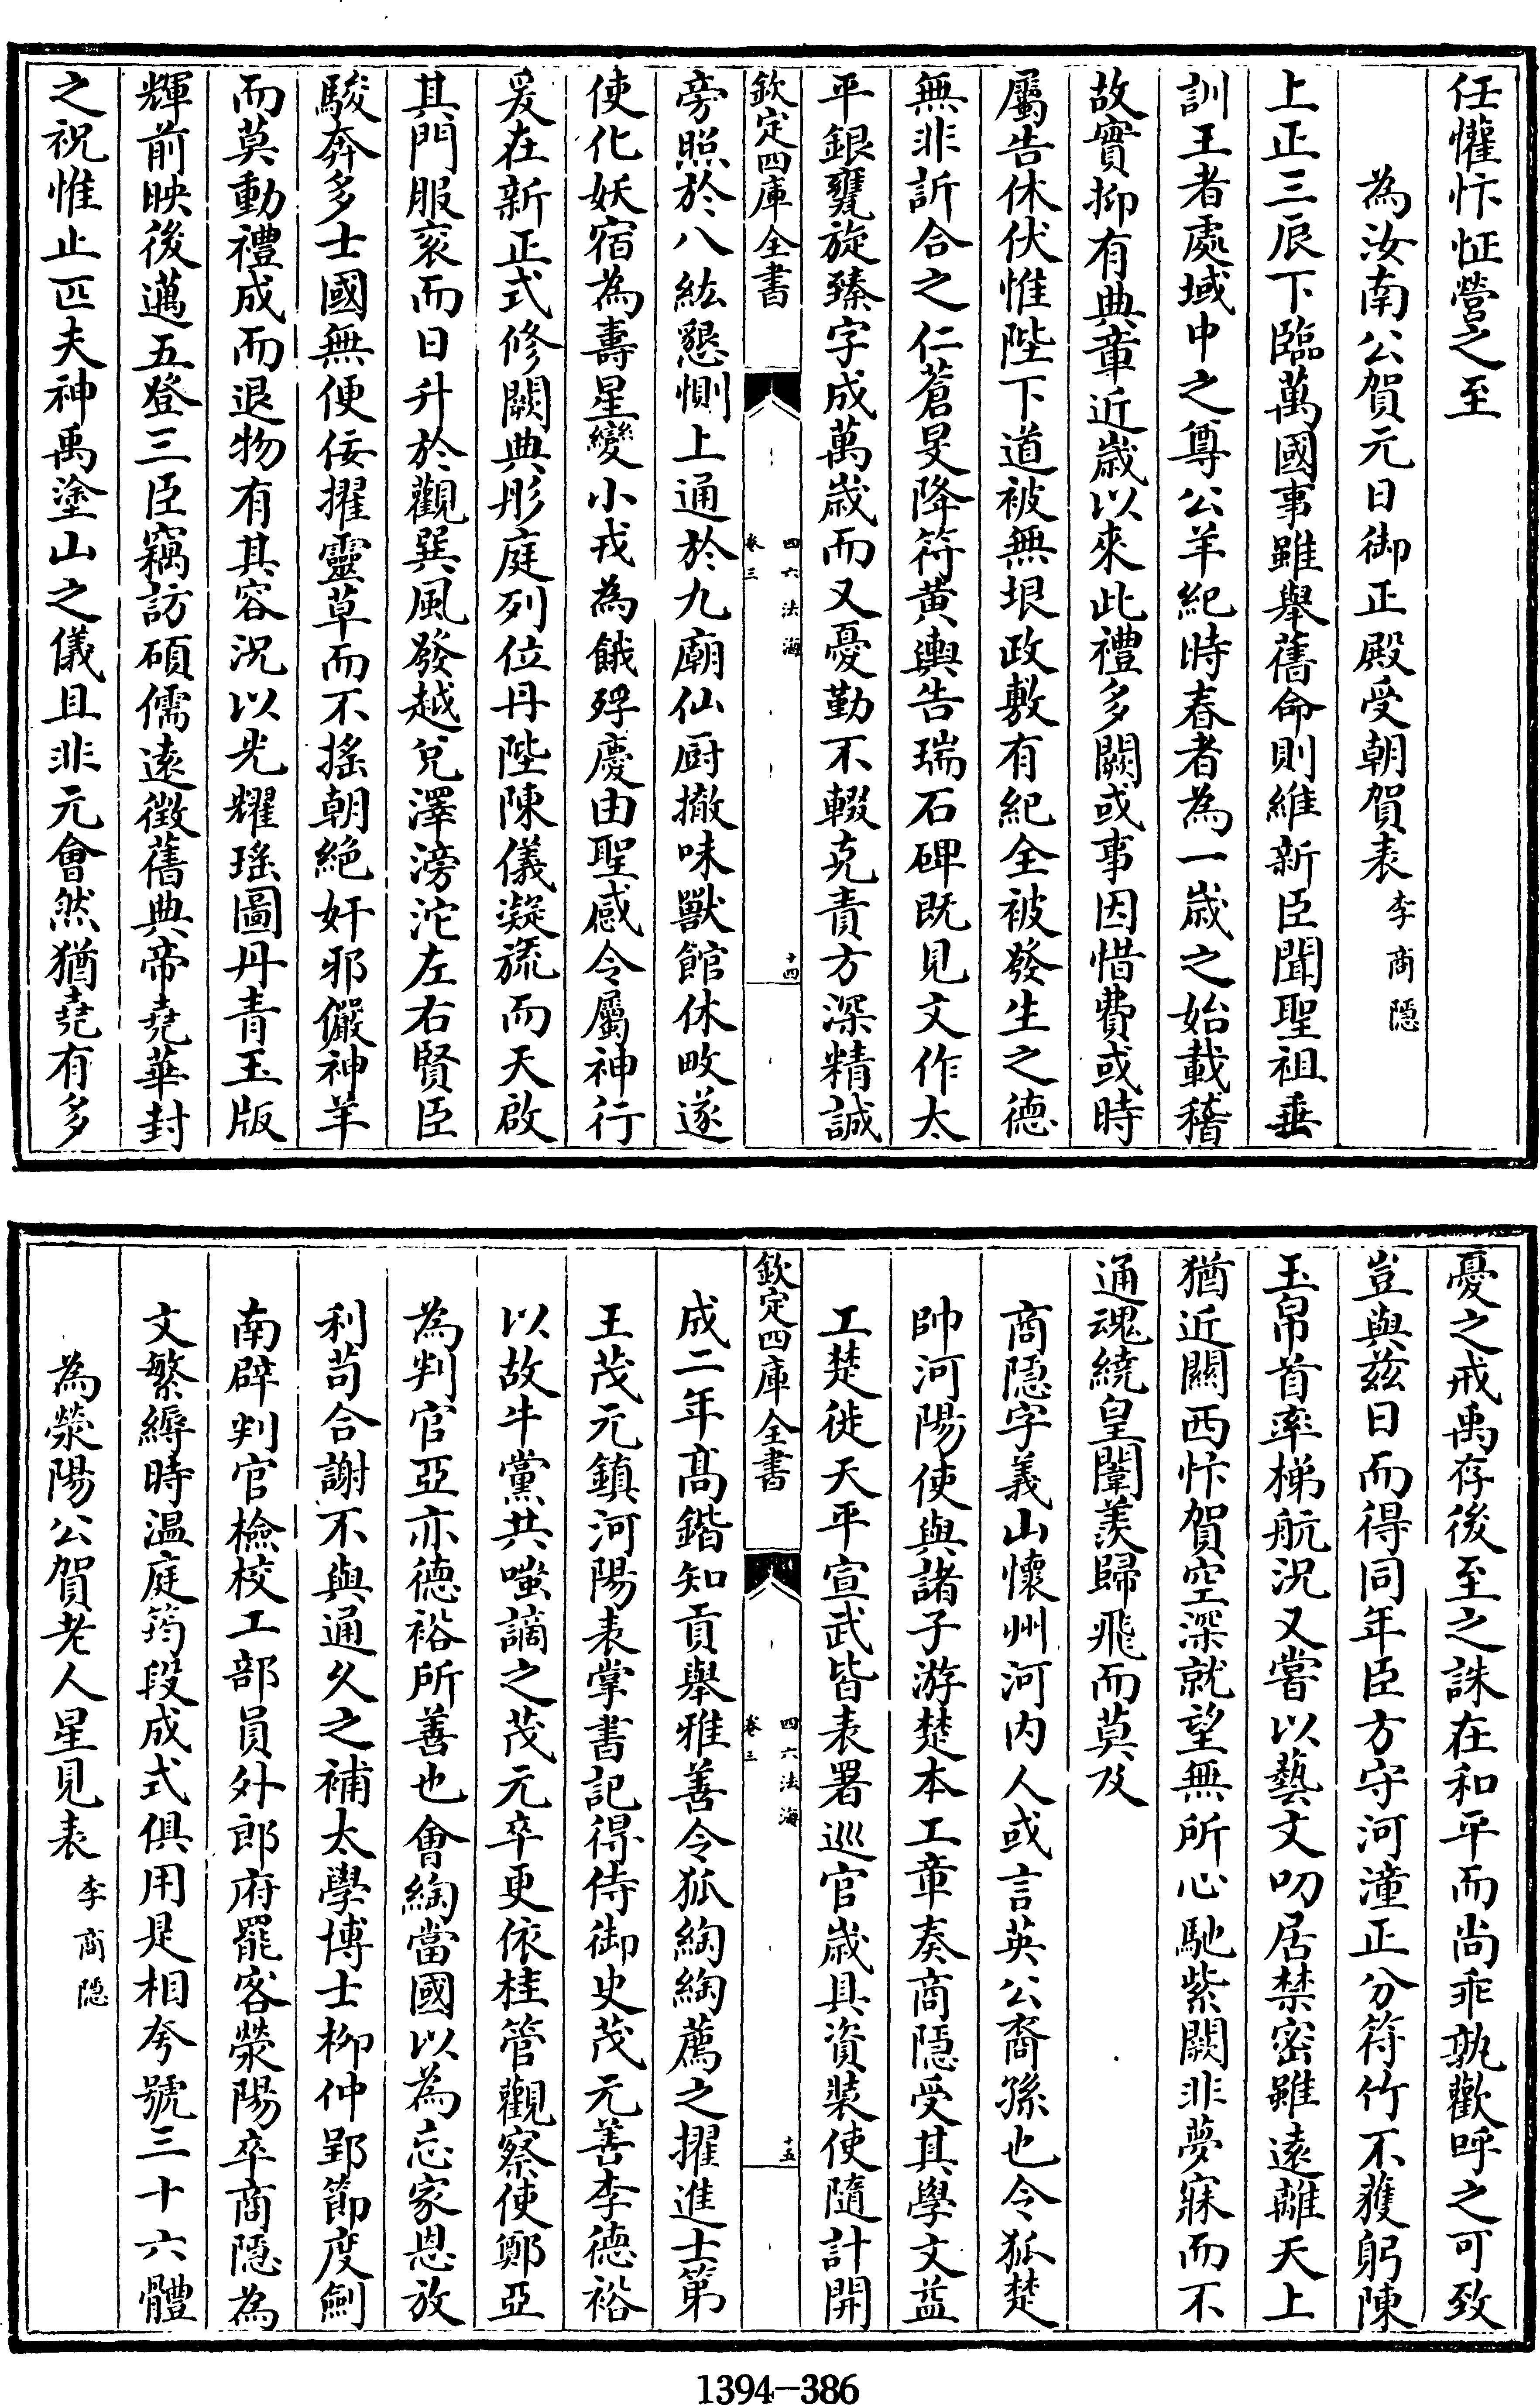 任懽忭怔營之至
為汝南公賀元日御正殿受朝賀表李商隱
上正三辰下臨萬國事雖舉舊命則維新臣聞聖祖垂
訓王者處域中之尊公羊紀時春者為一歳之始載稽
故實抑有典章近歳以來此禮多闕或事因惜費或時
屬告休伏惟陛下道被無垠政敷有紀全被發生之德
無非訢合之仁蒼旻降符黄輿告瑞石碑既見文作太
平銀甕旋臻字成萬歳而又憂勤不輟克責方深精誠
欽定四庫全書
四六法海
卷三
十四
旁照於八紘懇惻上通於九廟仙厨撤味獸館休畋遂
使化妖宿為壽星變小戎為餓殍慶由聖感令屬神行
爰在新正式修闕典彤庭列位丹陛陳儀凝旒而天啟
其門服衮而日升於觀巽風發越兌澤滂沱左右賢臣
駿奔多士國無便佞擢靈草而不搖朝絶奸邪儼神羊
而莫動禮成而退物有其容況以光耀瑤圖丹青玉版
輝前映後邁五登三臣竊訪碩儒遠徴舊典帝堯華封
之祝惟止匹夫神禹塗山之儀且非元會然猶堯有多
憂之戒禹存後至之誅在和平而尚乖孰歡呼之可致
豈與兹日而得同年臣方守河潼正分符竹不獲躬陳
玉帛首率梯航況又嘗以藝文叨居禁密雖遠離天上
猶近關西忭賀空深就望無所心馳紫闕非夢寐而不
通魂繞皇闈羨歸飛而莫及
商隱字義山懷州河内人或言英公裔孫也令狐楚
帥河陽使與諸子游楚本工章奏商隱受其學文益
工楚徙天平宣武皆表署巡官歳具資裝使隨計開
欽定四庫全書
四六法海
卷三
十五
成二年髙鍇知貢舉雅善令狐綯綯薦之擢進士第
王茂元鎮河陽表掌書記得侍御史茂元善李德裕
以故牛黨共嗤謫之茂元卒更依桂管觀察使鄭亞
為判官亞亦德裕所善也會綯當國以為忘家恩放
利苟合謝不與通久之補太學博士柳仲郢節度劍
南辟判官檢校工部員外郎府罷客滎陽卒商隱為
文繁縟時温庭筠段成式俱用是相夸號三十六體
為滎陽公賀老人星見表李商隱
1394-386